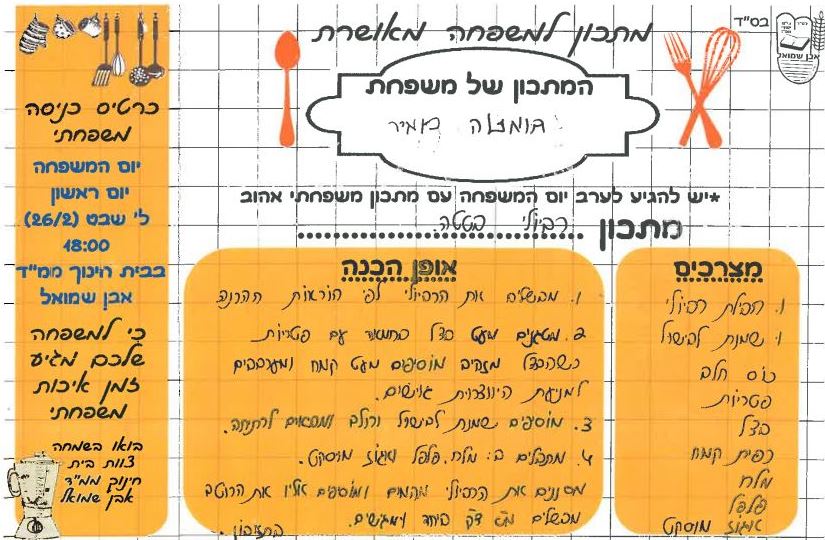 בס"ד
אבן שמואל
מתכון למשפחה מאושרת
המתכון של משפחת
*יש להגיע לערב יום המשפחה עם מתכון משפחתי אהוב
מתכון רביולי בטטה
מצרכים
1. חבילת רביולי
1 שמנת לבישול
כוס חלב
פטריות
בצל
כפית קמח
מלח
פלפל
אגוז מוסקט
אופן הכנה
1. מבשלים את הרביולי לפי הוראות ההכנה
2. מטגנים מעט בצל בחמאה עם פטריות.
כשהבצל מזהיב מוסיפים מעט קמח ומערבבים
למניעת היווצרות גושים.
3. מוסיפים שמנת לבישול וחלב ומביאים לרתיחה.
4. מתבלים ב: מלח, פלפל ואגוז מוסקט.
מסננים את הרביולי מהמים ומוסיפים אליו את הרוטב
מבשלים דק' ביחד ומגישים.
בתאבון..
כרטיס כניסה
משפחתי
יום המשפחה
יום ראשון
ל' שבט (26/2)
18:00
בבית חינוך ממ"ד
אבן שמואל
כי למשפחה
שלכם מגיע
זמן איכות
משפחתי
בואו בשמחה
צוות בית
חינוך ממ"ד
אבן שמואל